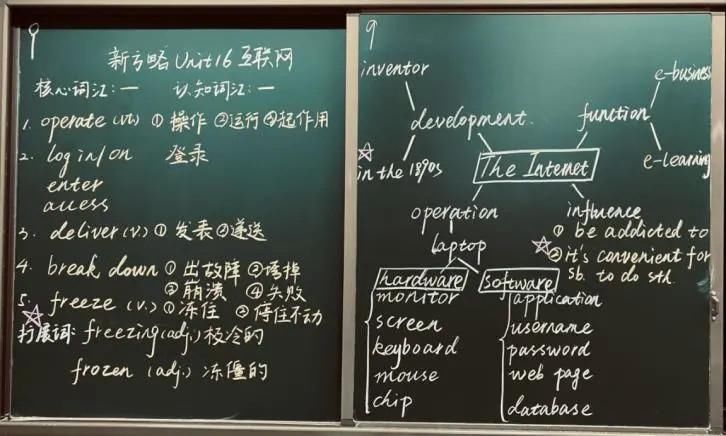 9
新方略Unit16互联网
核心词汇:一 认知词汇:一
1. operate (vt.) ① 操作 ②运行 ③起作用
2. log in/on 登录
enter
access
3. deliver (v.) ① 发表 ② 递送
4. break down ① 出故障 ②
③ 崩溃 ④ 失败
5. freeze (v.) ① 冻住 ② 停住不动
扩展词: freezing (adj.) 极冷的
frozen (adj.) 冻僵的
9
inventor
e-business
development
function
in the 1890s
The Internet
e-learning
operation
influence
① be addicted to
② it's convenient for
sb. to do sth.
laptop
hardware
monitor
screen
keyboard
mouse
chip
software
application
username
password
web page
database